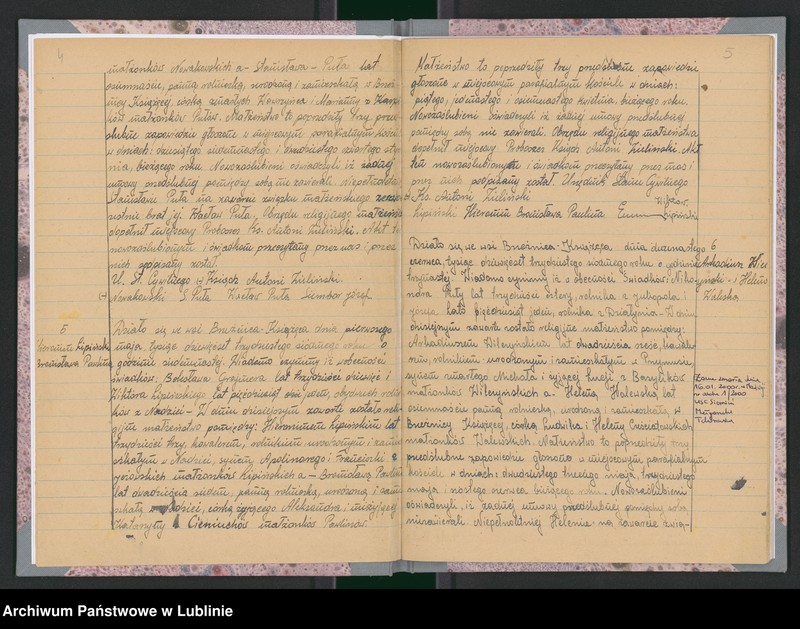 4
małżonków Nowakowskich a - Stanisława - Puła lat
osiemnaście, panną rolniczką, urodzoną i zamieszkałą w Brzeź-
nicy Książęcej, córką zmarłych Wawrzyńca i Marianny z
ków małżonków Pułów. Małżeństwo to poprzedziły trzy przed-
ślubne zapowiedzie głoszone w miejscowym parafialnym kości-
w dniach: dziesiątego siedemnastego i dwudziestego czwartego sty-
nia, bieżącego roku. Nowozaślubieni oświadczyli iż żadnej
umowy przedślubnej pomiędzy sobą nie zawierali. Niepełnoletniej
Stanisławie Puła na zawarcie związku małżeńskiego zezwolił
ustnie brat jej Wacław Puła, Obrzędu religijnego małżeństwa
dopełnił miejscowy Proboszcz Ks. Antoni Zieliński. Akt ten
nowozaślubionym i świadkom przeczytany przez nas i przez
nich podpisany został.
U. St. Cywilnego Ksiądz Antoni Zieliński.
Nowakowski S Puła Wacław Puła Józef
5
Hieronim Lipiński
Bronisława Paulina
Działo się we wsi Brzeźnica-Książęca dnia pierwszego
maja, tysiąc dziewięćset trzydziestego siódmego roku o
godzinie siedemnastej. Wiadomo czynimy iż w obecności
świadków: Bolesława lat trzydzieści dziewięć i
Wiktora Lipińskiego lat pięćdziesiąt obydwóch rolni-
ków z - W dniu dzisiejszym zawarte zostało reli-
gijne małżeństwo pomiędzy: Hieronimem Lipińskim lat
trzydzieści trzy, kawalerem, rolnikiem urodzonym i zamie-
szkałym w synem Apolinarego i Franciszki z
małżonków Lipińskich a - Bronisławą
lat dwadzieścia siedem, panną rolniczką, urodzoną i zamie-
szkałą w córką żyjącego Aleksandra i nieżyjącej
Katarzyny Cieniuchów małżonków
5
Małżeństwo to poprzedziły trzy przedślubne zapowiedzie
głoszone w miejscowym parafialnym kościele w dniach:
piątego, jedenastego i osiemnastego kwietnia, bieżącego roku.
Nowozaślubieni oświadczyli iż żadnej umowy przedślubnej
pomiędzy sobą nie zawierali. Obrzędu religijnego małżeństwa
dopełnił miejscowy Proboszcz Ksiądz Antoni Zieliński. Akt
ten nowozaślubionym i świadkom przeczytany przez nas i
przez nich podpisany został. Urzędnik Stanu Cywilnego
Ks. Antoni Zieliński
Lipiński Hieronim Bronisława Paulina Lipiński
Działo się we wsi Brzeźnica-Książęca, dnia dwunastego
czerwca, tysiąc dziewięćset trzydziestego siódmego roku o godzinie
trzynastej. Wiadomo czynimy iż w obecności świadków:
Puły lat trzydzieści cztery, rolnika z i
Józefa lat pięćdziesiąt jeden, rolnika z - W dniu
dzisiejszym zawarte zostało religijne małżeństwo pomiędzy:
Arkadiuszem Wilczyńskim lat dwadzieścia sześć, kawale-
rem, rolnikiem urodzonym i zamieszkałym w
synem zmarłego Michała i żyjącej z
małżonków Wilczyńskich a - Heleną, Walewską, lat
osiemnaście panną, rolniczką, urodzoną i zamieszkałą w
Brzeźnicy Książęcej, córką Ludwika i Heleny
małżonków Walewskich. Małżeństwo to poprzedziły trzy
przedślubne zapowiedzie głoszone w miejscowym parafialnym
kościele w dniach: dwudziestego trzeciego maja, trzydziestego
maja i szóstego czerwca bieżącego roku. Nowozaślubieni
oświadczyli, iż żadnej umowy przedślubnej pomiędzy sobą
nie zawierali. Niepełnoletniej Helenie na zawarcie zwią-
6
Arkadiusz Wil
czyński - i Helena
Walewska
Zenon zmarł dnia
16.01.2000 r. w
nr aktu 1/2000
USC Siemień
Archiwum Państwowe w Lublinie